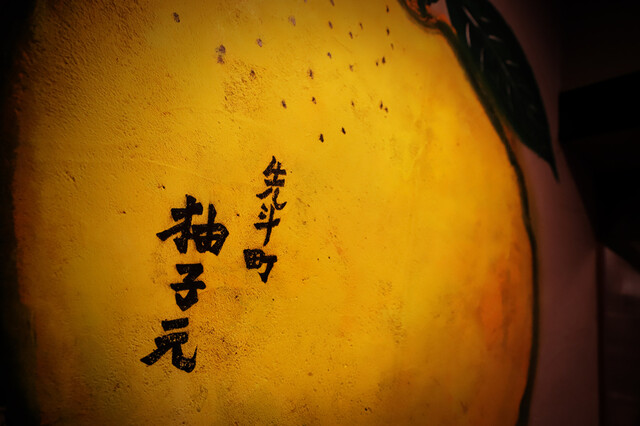 先斗町
柚子元